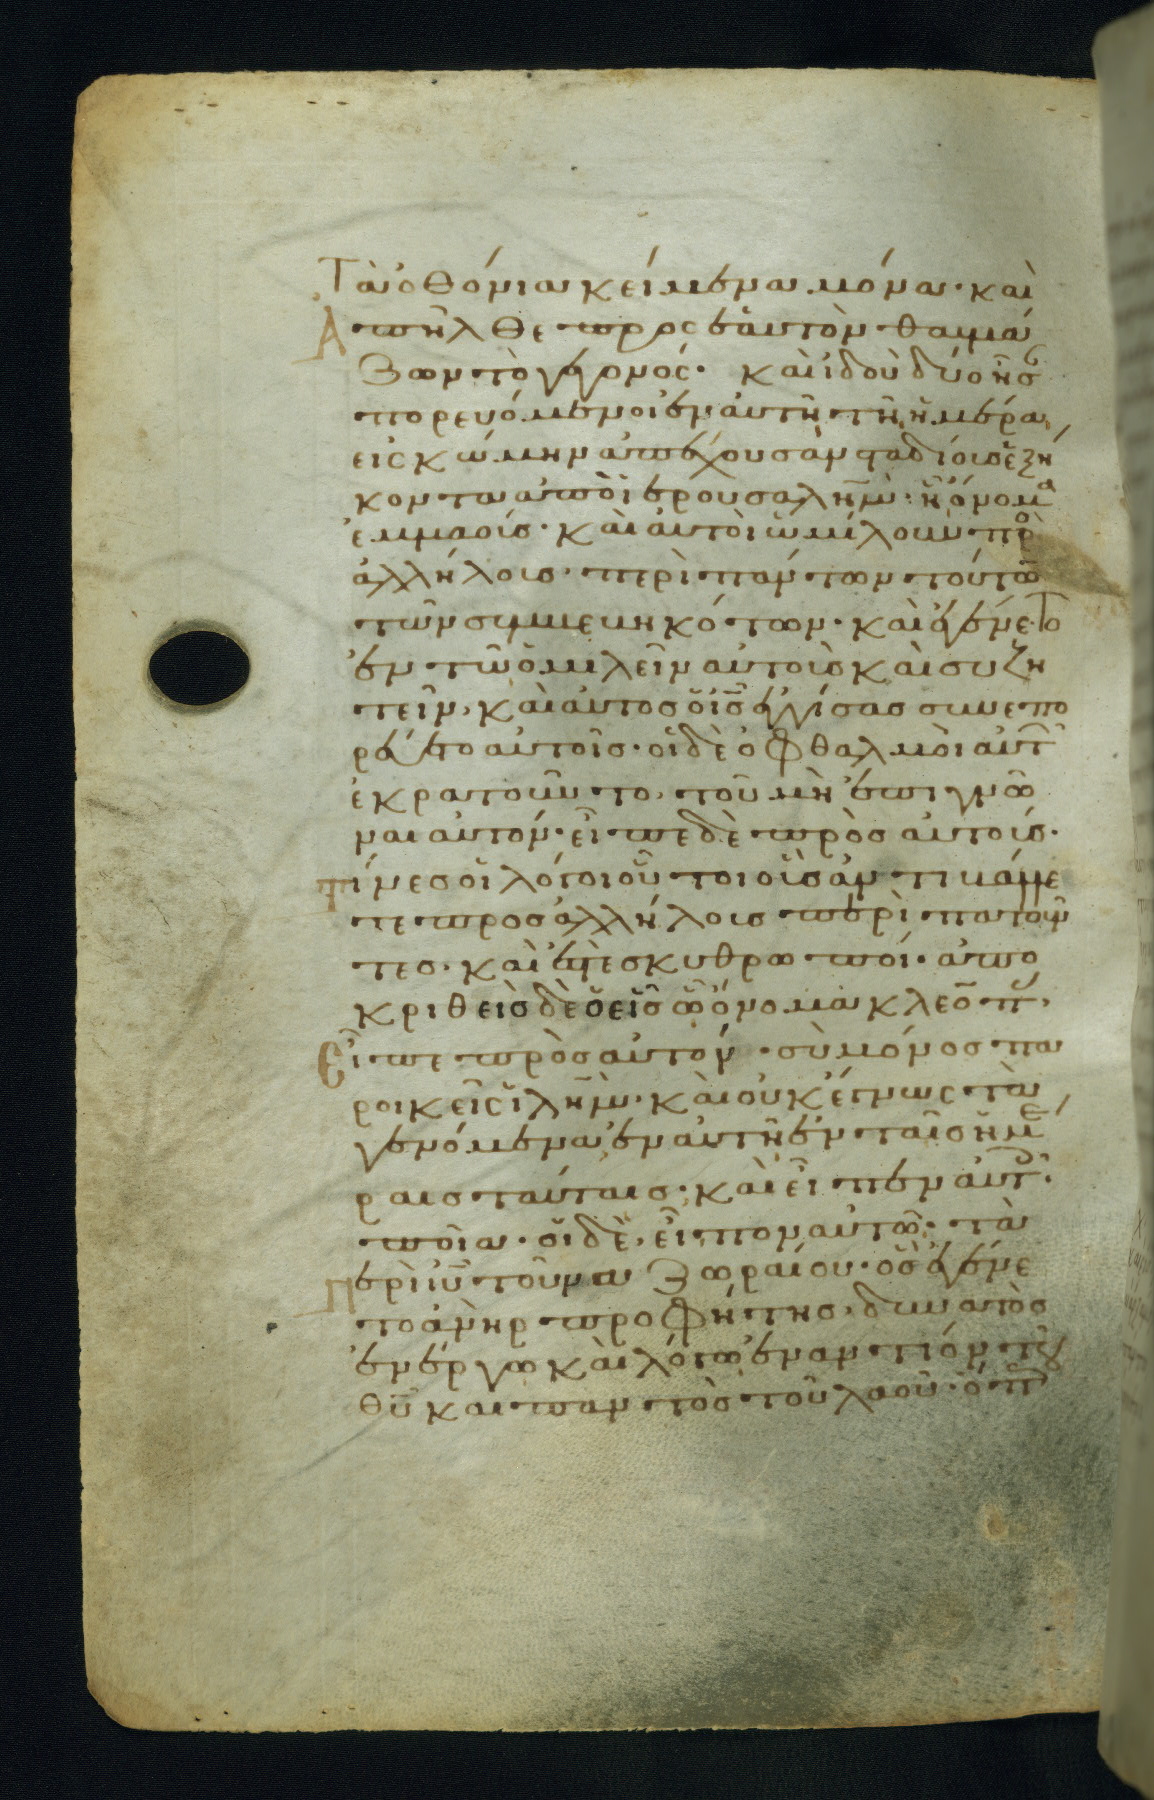 Τὰ ὀθόνια κείμενα μόνα· καὶ
ἀπῆλθε προς ἑαυτὸν θαυμά
ζων τὸ γεγονός. καὶ ἰδοὺ δύο ἦσ
πορευόμενοι ἐν αὐτῆ τῆ ἡμέρα,
εἰς κώμην ἀπέχουσαν σταδίους ἑξή
κοντα ἀπὸ ἱερουσαλὴμ· ἧ ὄνομα
ἐμμαούς· καὶ αὐτοὶ ὡμίλουν πρὸ
ἀλλήλους περὶ πάντων τούτω
τῶν συμβεβηκότων· καὶ ἐγένετο
ἐν τῶ ὁμιλεῖν αὐτοὺς καὶ συζη
τεῖν, καὶ αὐτος ὁ ἰς ἐγγίσας συνεπο
ρεύετο αὐτοῖς· οἱ δὲ ὀφθαλμοὶ αὐτ
ἐκρατοῦντο, τοῦ μὴ ἐπιγνῶ
ναι αὐτόν· εἶπε δὲ πρὸς αὐτούς·
τίνες οἱ λόγοι οὗτοι οὓς ἀντιβάλλε
τε προς ἀλλήλους περὶπατοῦν
τες· καὶ ἐστὲ σκυθρωποί· ἀπο
κριθεὶς δὲ ὁ εἷς ὧ ὄνομα κλεόπ,
εἶπε πρὸς αὐτόν· σὺ μόνος πα
ροικεῖς ἰλὴμ· καὶ οὐκ ἔγνως τὰ
γενόμενα ἐν αὐτῆ ἐν ταῖς ἡμέ
ραις ταύταις· καὶ εἶπεν αὐτ·
ποῖα· οἱ δὲ, εἶπον αὐτῶ· τὰ
περὶ ιυ τοῦ ναζωραίου· ὃς ἐγένε
το ἀνὴρ προφήτης, δυνατὸς
ἐν ἔργω καὶ λόγω ἐναντίον τοῦ
θυ και παντὸς τοῦ λαοῦ· ὅπ